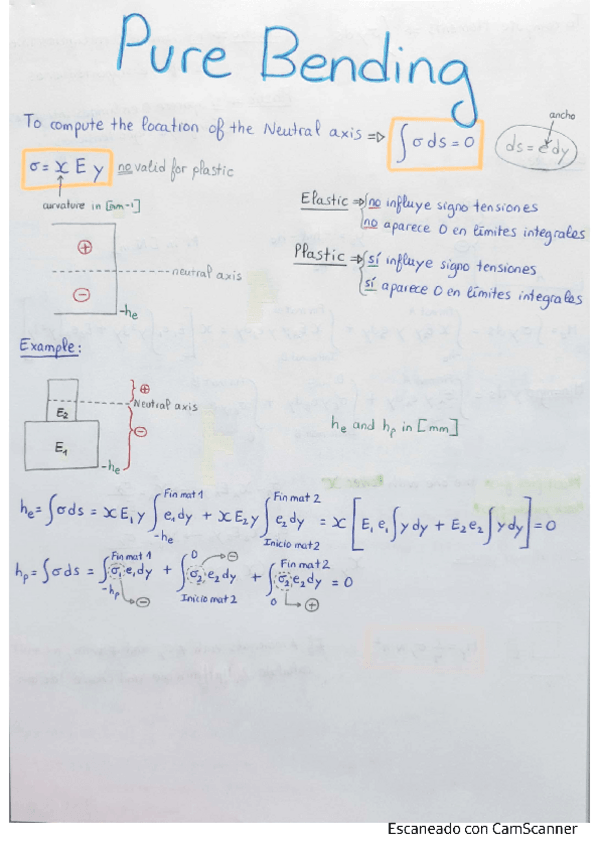 Pure Bending
To compute the location of the Neutral axis => ∫σ ds = 0
ancho
ds = e dy
σ = x E y no valid for plastic
curvature in [mm⁻¹]
Elastic => no influye signo tensiones
no aparece 0 en límites integrales
Plastic => sí influye signo tensiones
sí aparece 0 en límites integrales
+
neutral axis
-
-he
Example:
+
Neutral axis
E2
-
E1
-he
he and hp in [mm]
he = ∫σ ds = x E1 y ∫_{-he}^{Fin mat 1} e1 dy + x E2 y ∫_{Inicio mat 2}^{Fin mat 2} e2 dy = x [E1 e1 ∫y dy + E2 e2 ∫y dy] = 0
hp = ∫σ ds = ∫_{-hp}^{Fin mat 1} σ1 e1 dy + ∫_{Inicio mat 2}^{0} σ2 e2 dy + ∫_{0}^{Fin mat 2} σ2 e2 dy = 0
- - +
Escaneado con CamScanner